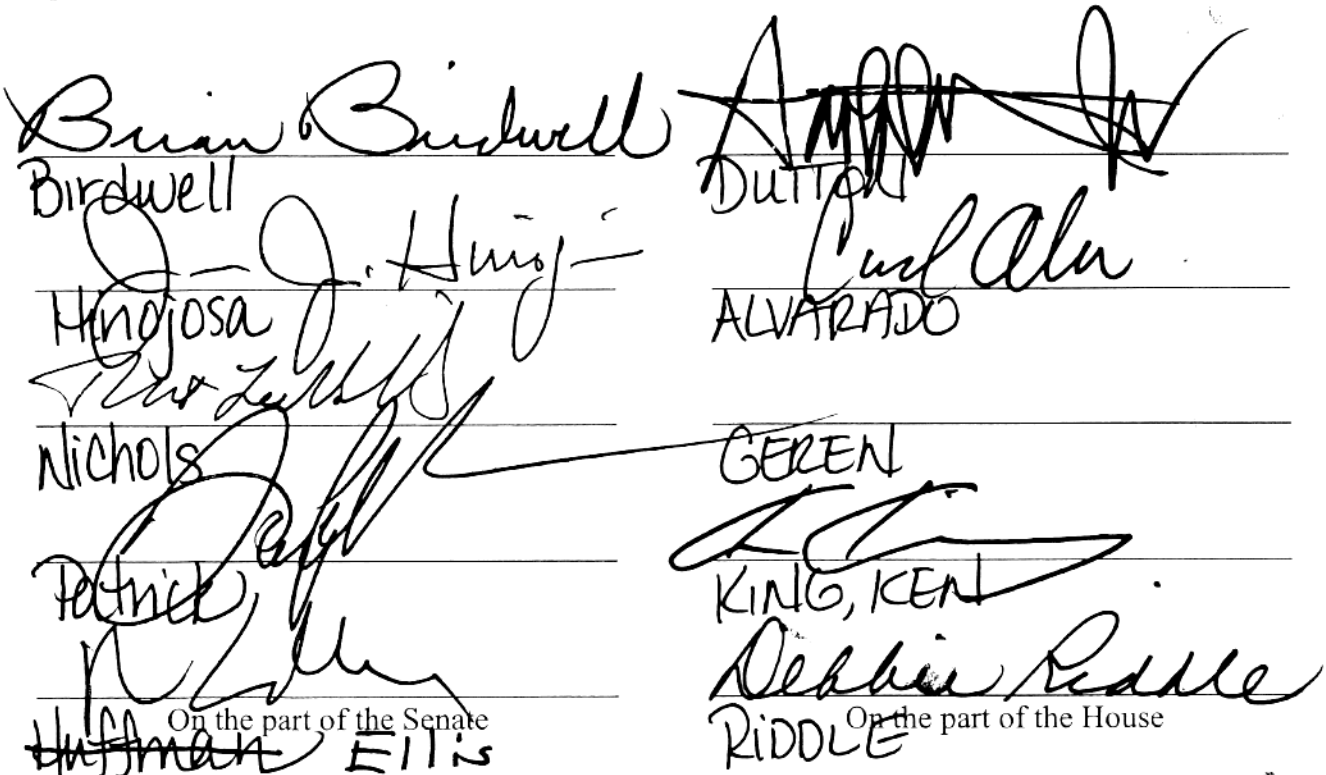 Brian Birdwell
Birdwell
J. Hinoj
Hinojosa
Nichols
Patrick
On the part of the Senate
Huffman Ellis
DUTTON
Carol Alvarado
ALVARADO
GEREN
KING, KEN
Debbie Riddle
On the part of the House
RIDDLE